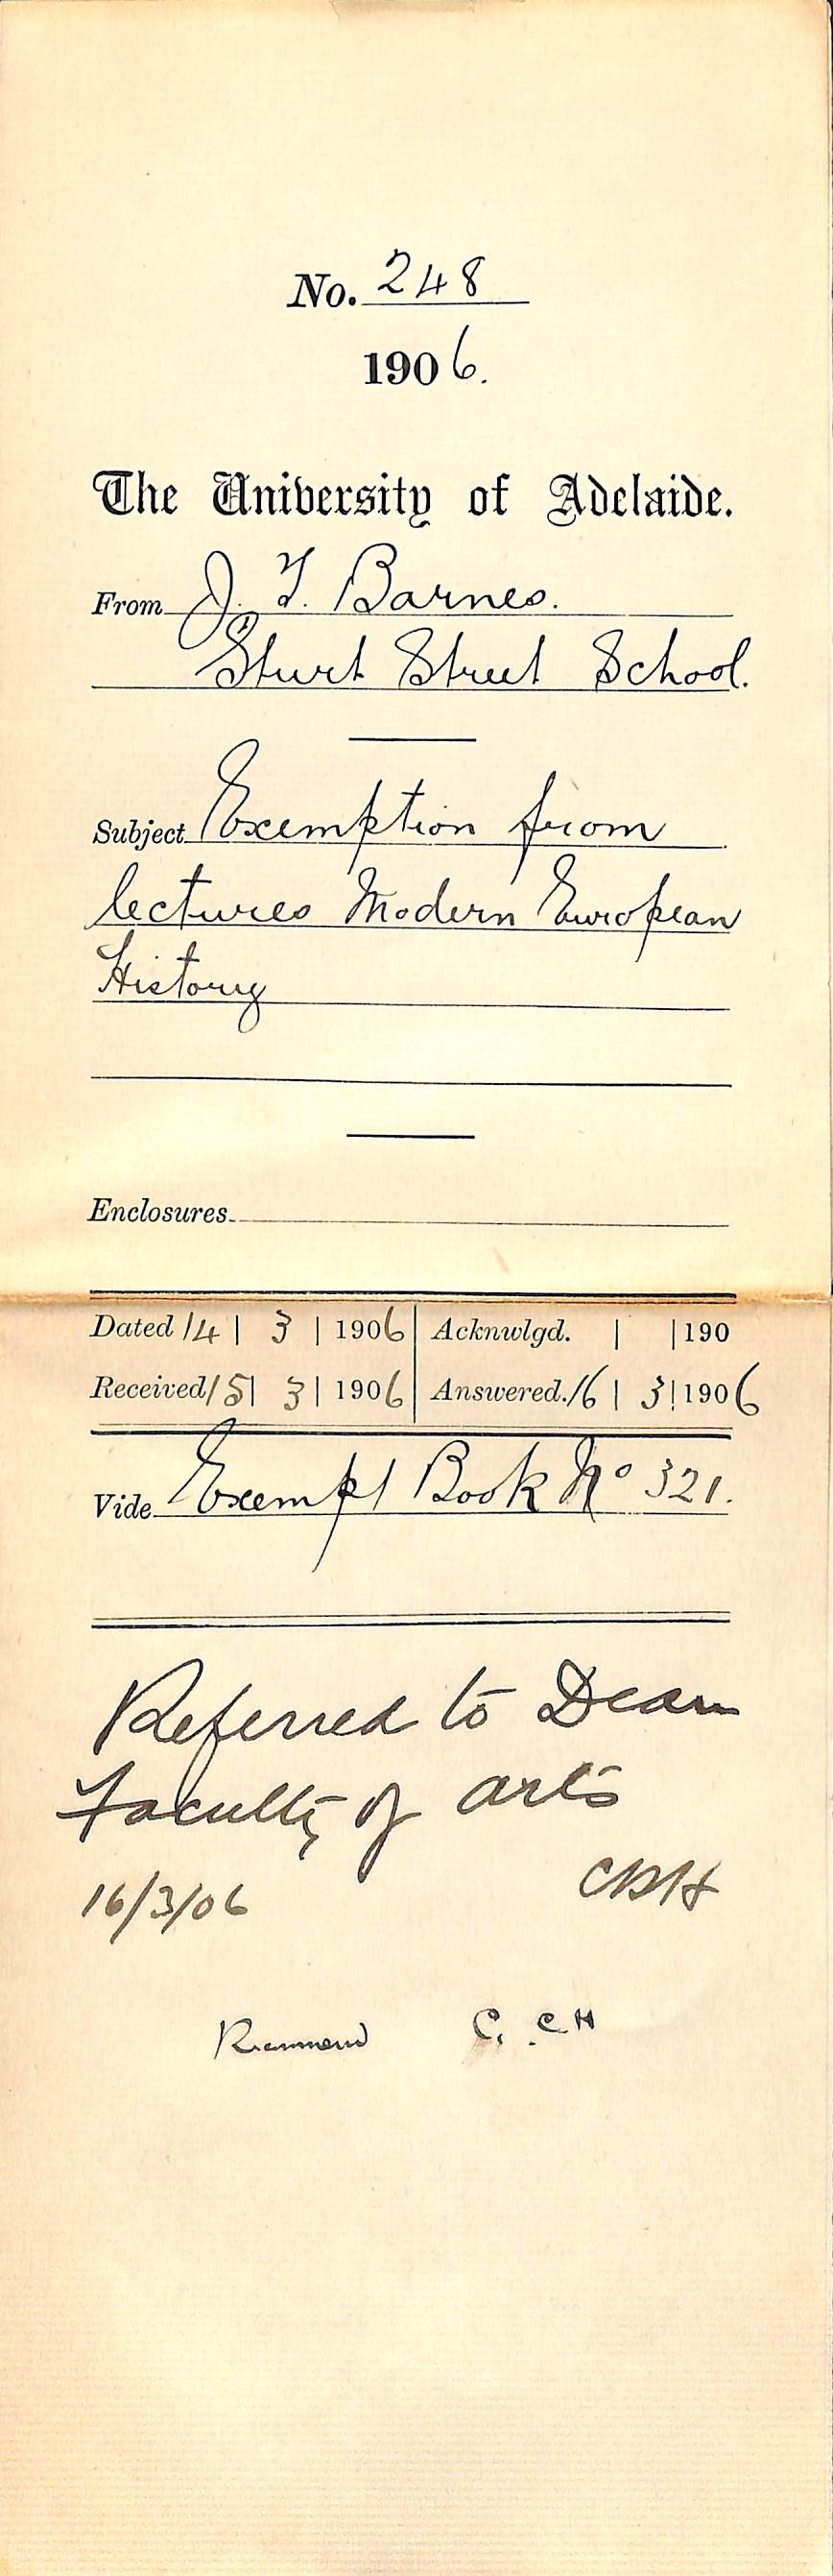 No. 248
1906.
The University of Adelaide.
From J. T. Barnes.
Sturt Street School.
Subject Exemption from
lectures Modern European
History
Enclosures
Dated 14 | 3 | 1906 Acknwlgd. | | 190
Received 15 | 3 | 1906 Answered. 16 | 3 | 1906
Vide Exempt Book No 321.
Referred to Dean
Faculty of Arts
16/3/06